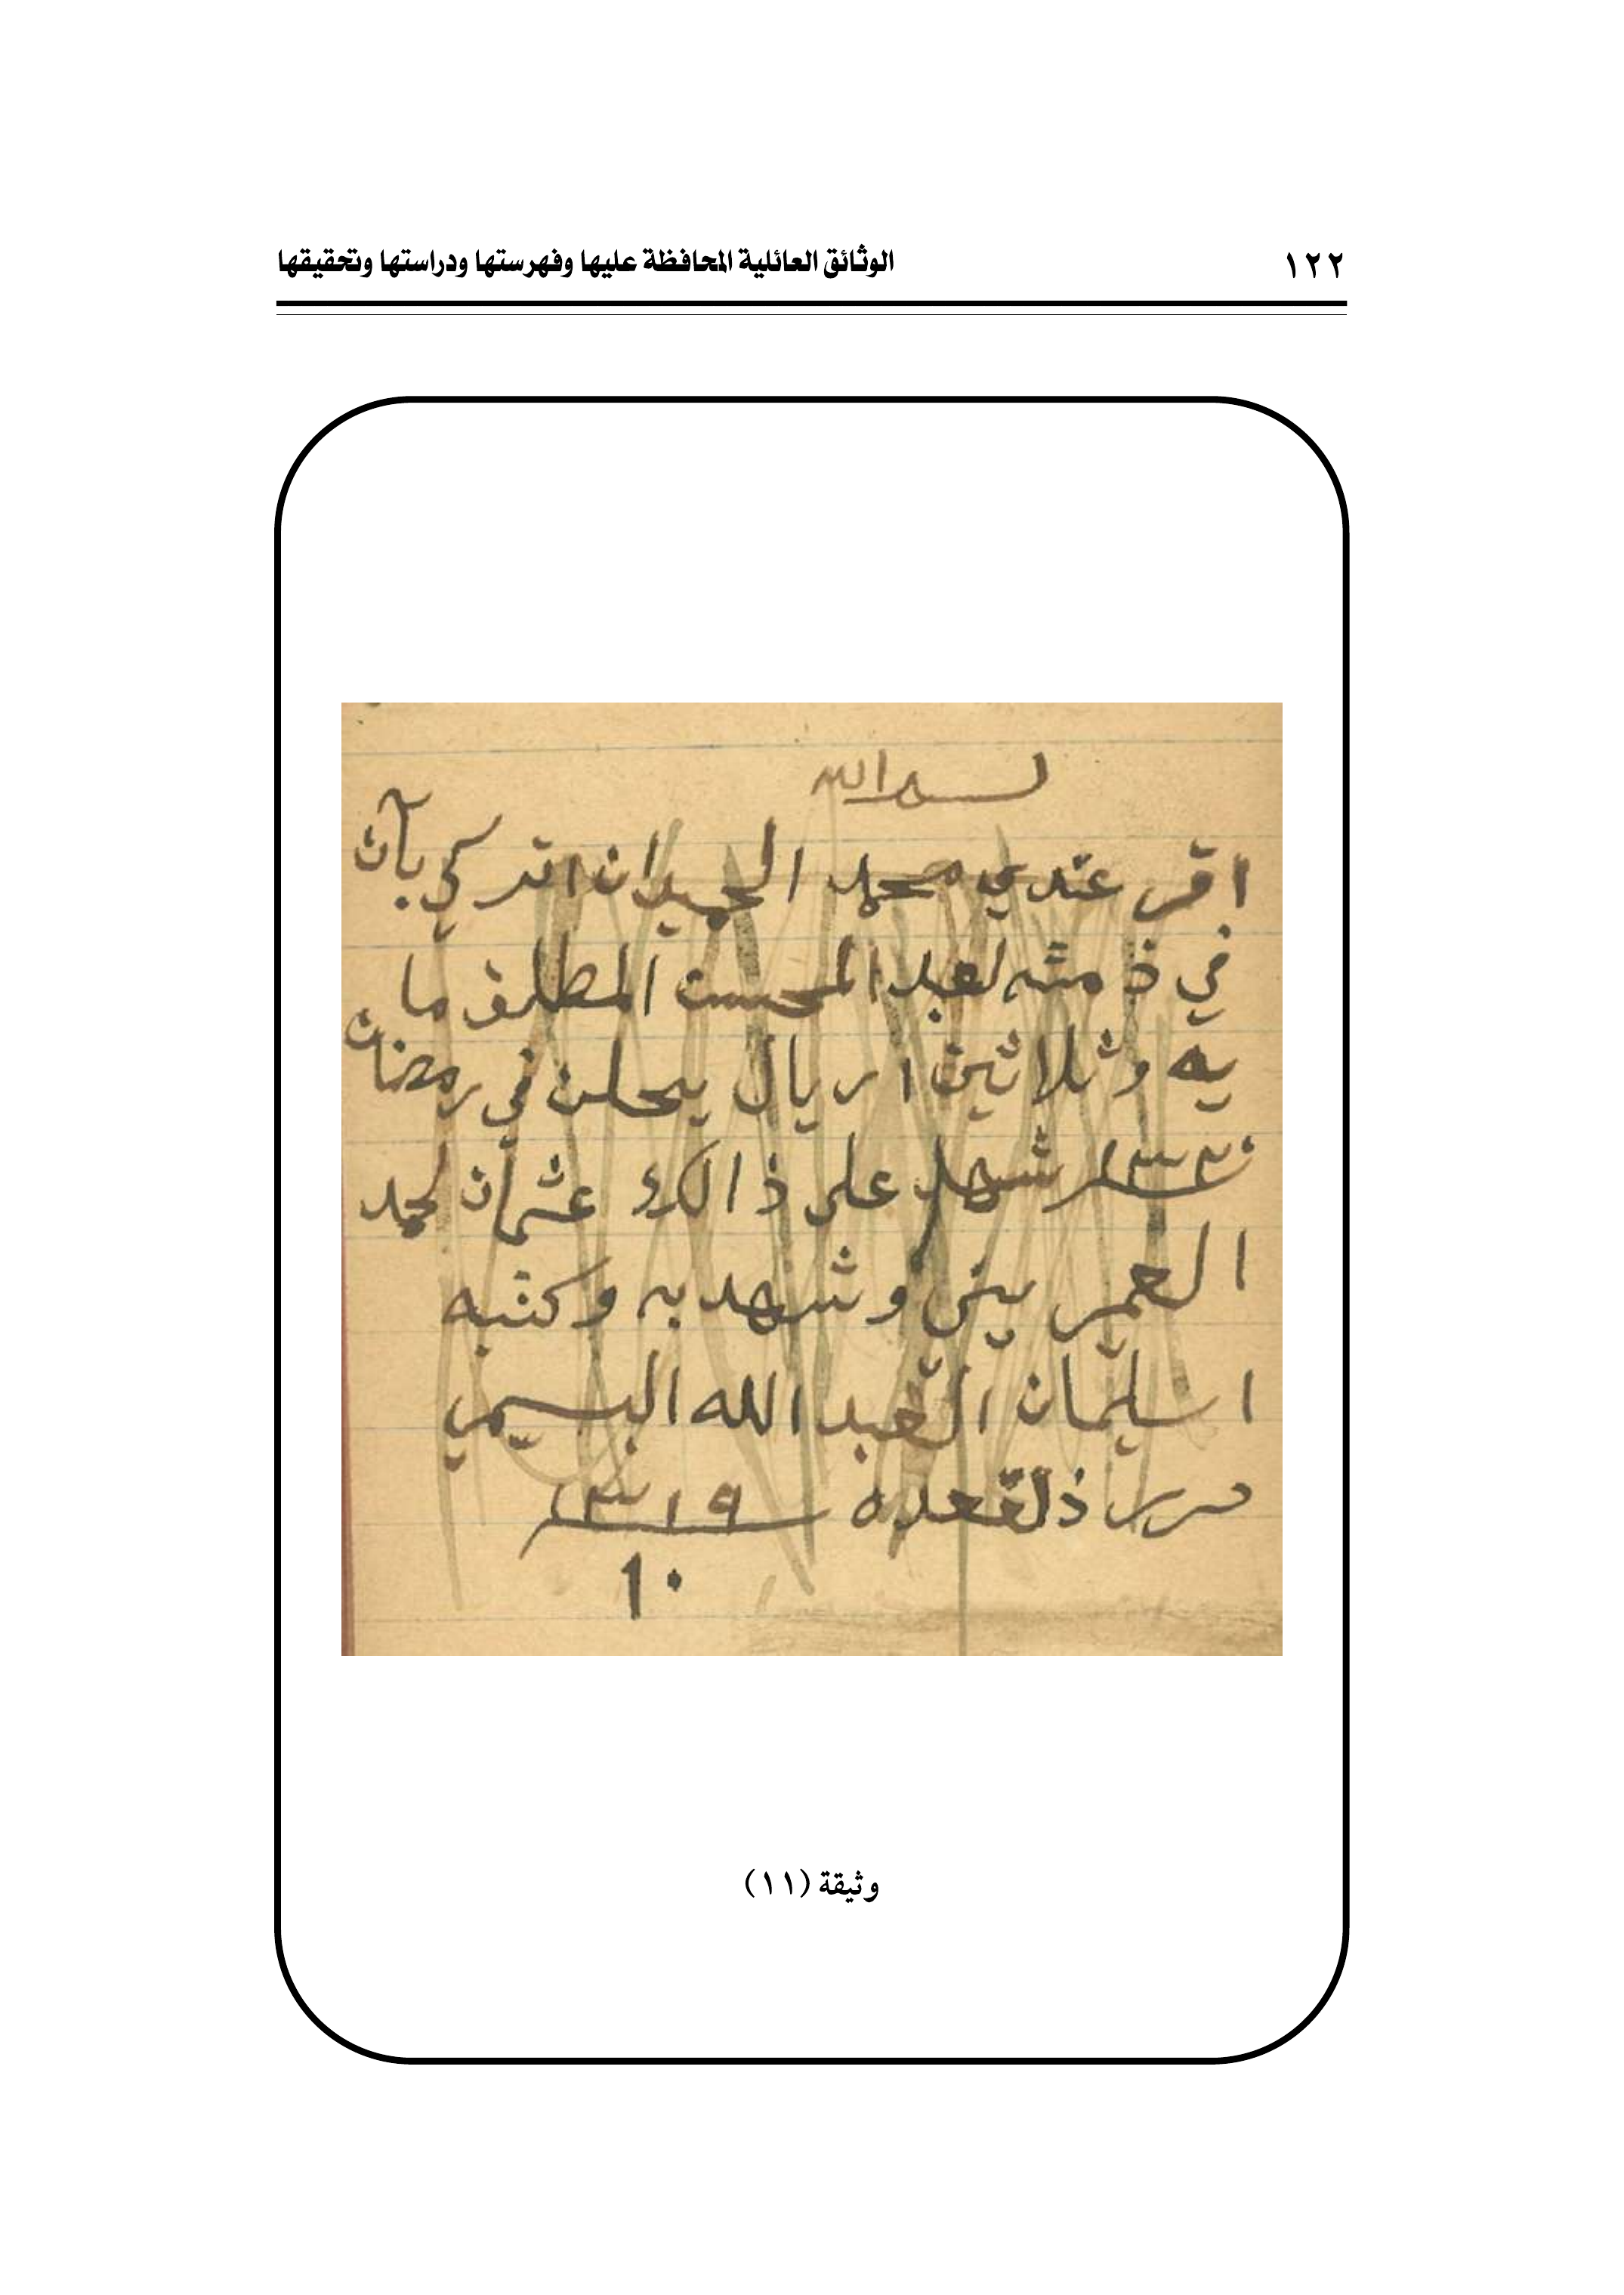 ١٢٢ الوثائق العائلية المحافظة عليها وفهرستها ودراستها وتحقيقها
بسم الله
اقر عندي محمد الحميدان التركي بأن
في ذمته لعبد المحسن المطلق ما
يه وثلاثين اريال يحلن في رمضان
١٣٢٠ شهد على ذالك عثمان لحمد
العمريني وشهد به وكتبه
اسليمان العبد الله البسيمي
حرر ذلقعده ١٣١٩
١٠
وثيقة (١١)